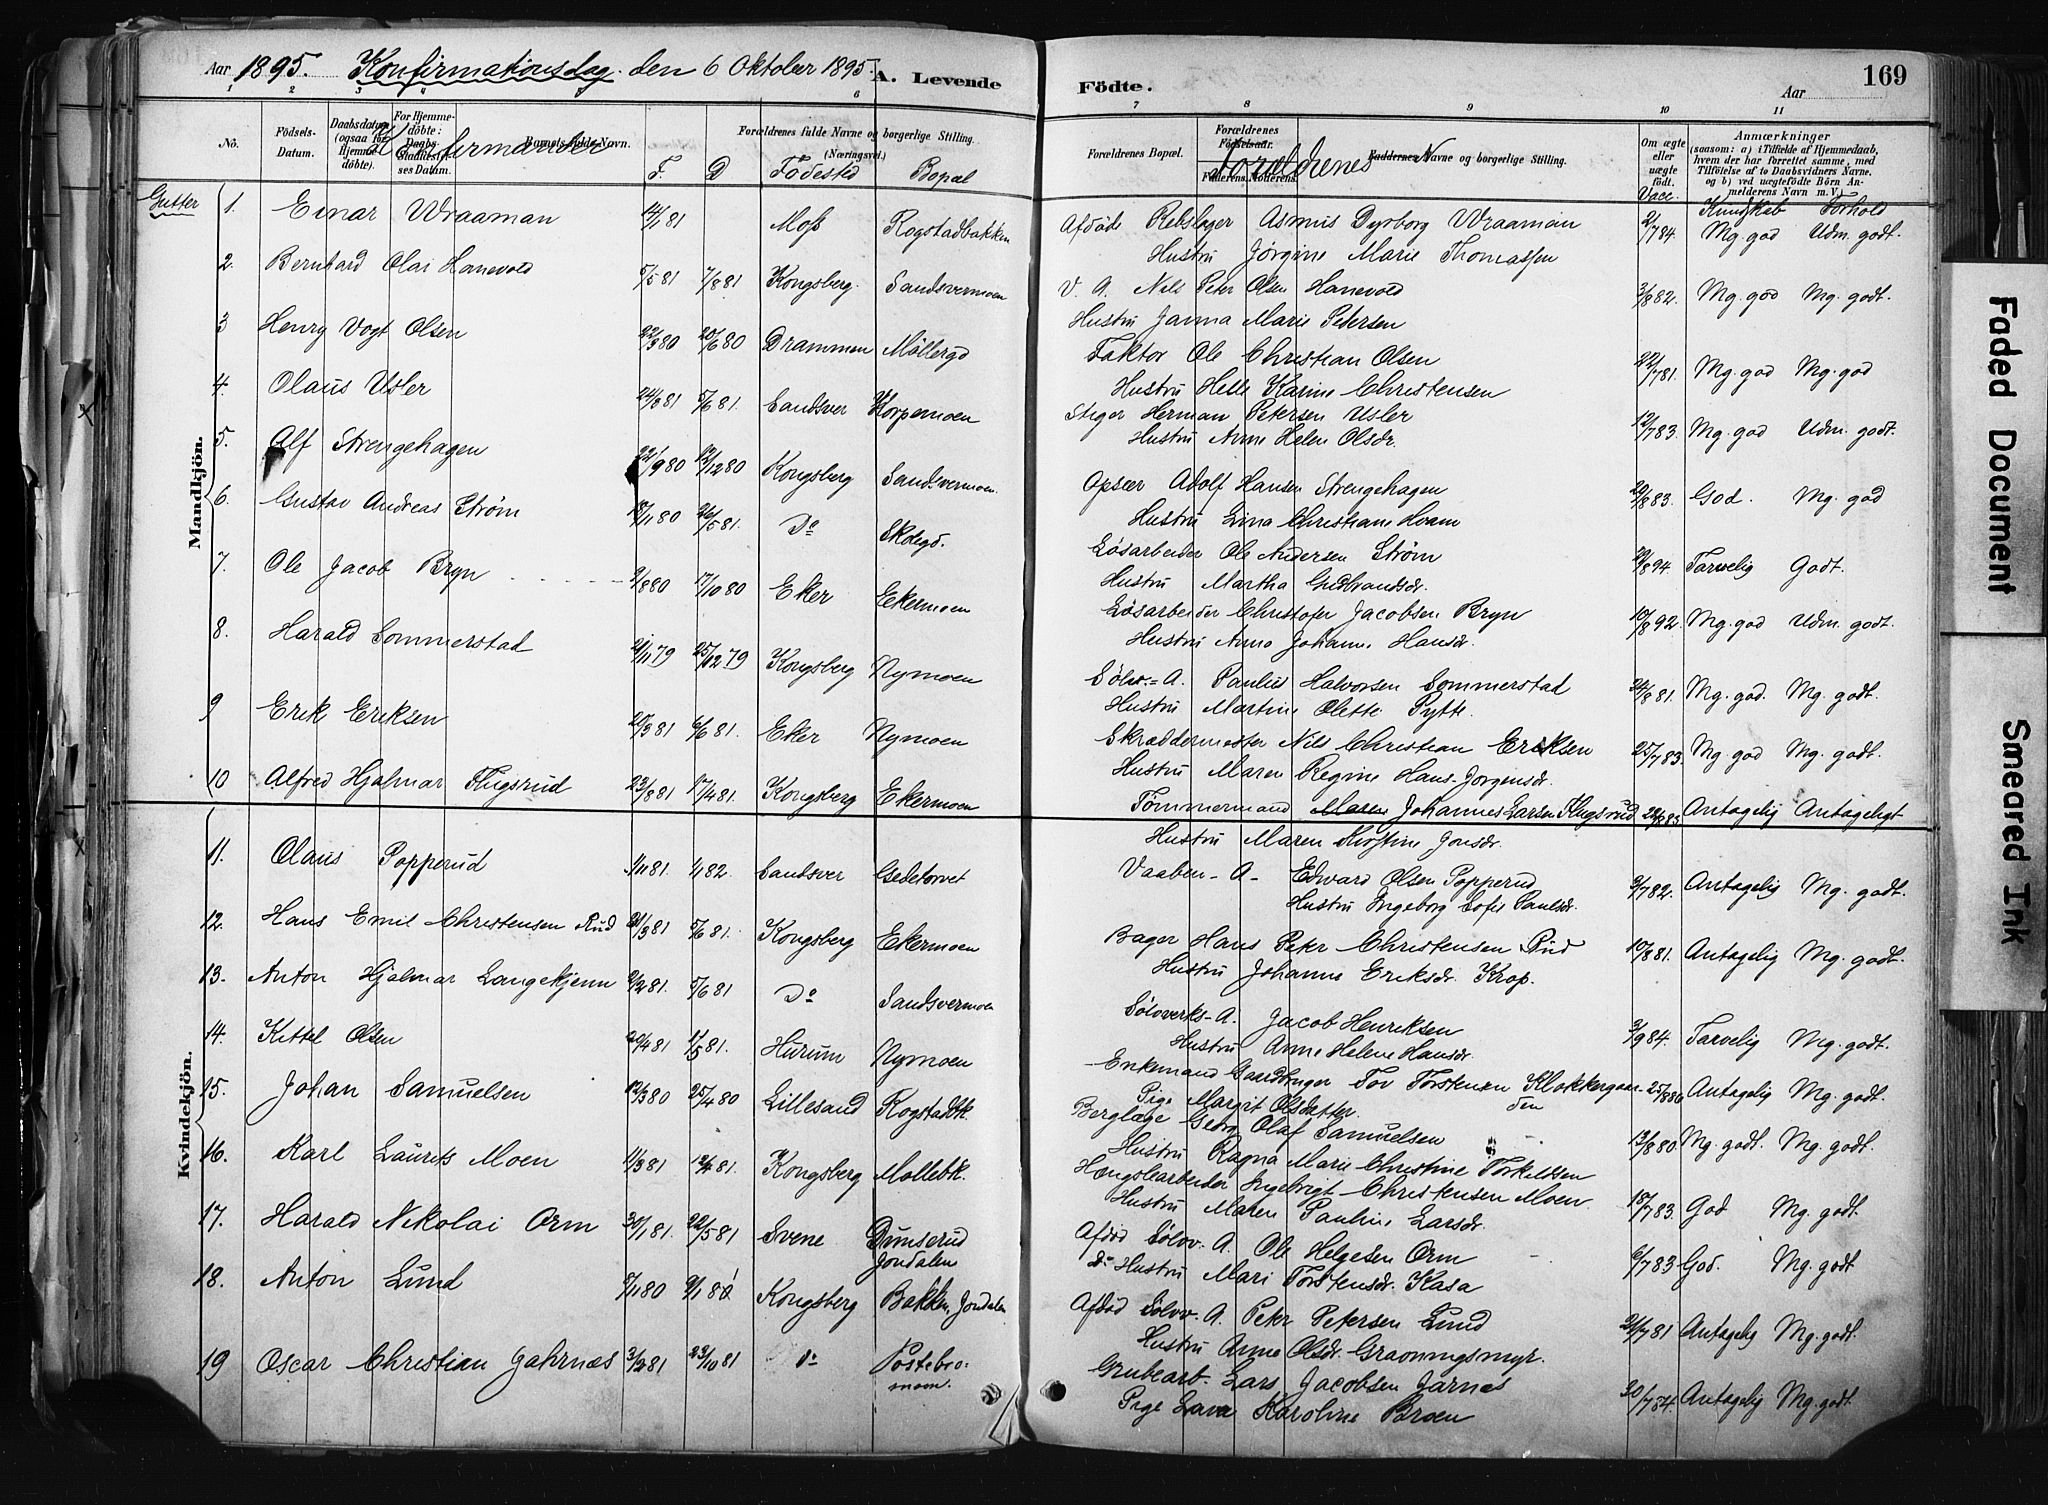 Aar 1895. Konfirmationsdag den 6 Oktober 1895. A. Levende Födte. Aar 169
1 2 3 4 6 7 8 9 10 11
No. Födsels-Datum. Daabsdatum (ogsaa for Hjemmedöbte). For Hjemmedöbte: Daabs Stadfæstelses Datum. Barnets fulde Navn. Forældrenes fulde Navne og borgerlige Stilling. (Næringsvei.) Forældrenes Bopæl. Forældrenes Födselsaar. Faderens. Moderens. Faddernes Navne og borgerlige Stilling. Om ægte eller uægte födt. Anmærkninger
(saasom: a) i Tilfælde af Hjemmedaab, hvem der har forrettet samme, med Tilföielse af to Daabsvidners Navne, og b) ved uægtefödte Börn Anmelderens Navn m. V.)
Konfirmander F. D Födested Bopæl Forældrenes N Vacc. Kundskab Forhold
Gutter
Mandkjön.
Kvindekjön.
1. Einar Wraaman 14/1 81 Moss Rogstadbakken Afdöde Rebslager Asmus Dyrborg Wraaman 2/7 84. Mg. god Udm. godt.
Hustru Jörgine Marie Thomassen
2. Bernhard Olai Hanevold 5/5 81 7/8 81 Kongsberg. Sandsvermoen V. A. Nils Peter Olsen Hanevold 3/8 82. Mg. god Mg. godt.
Hustru Janna Marie Petersen
3 Henry Vogt Olsen 22/3 80 20/6 80 Drammen Möllergd Faktor Ole Christian Olsen 22/7 81. Mg. god Mg. god
Hustru Helle Karine Christensen
4. Olaus Usler 5/6 81. Sandsver Korpemoen Stiger Herman Petersen Usler 12/7 83. Mg. god Udm. godt.
Hustru Anne Helene Olsdr.
5. Alf Strengehagen 22/9 80 12/12 80 Kongsberg Sandsvermoen. Opseer Adolf Hansen Strengehagen 29/8 83. God. Mg. god
Hustru Lina Christiane Hvam
6. Gustav Andreas Ström 26/5 81. Do Skolegd. Lösarbeider Ole Andersen Ström 29/8 94. Tarvelig Godt.
Hustru Martha Gudbrandsdr.
7. Ole Jacob Bryn 9/8 80 17/10 80 Eker Ekermoen Lösarbeider Christofer Jacobsen Bryn 10/8 92. Mg. god Udm. godt.
Hustru Anne Johanne Hansdr.
8. Harald Sommerstad 21/11 79 25/12 79 Kongsberg Nymoen Sölv.-A. Paulus Halvorsen Sommerstad 24/8 81. Mg. god. Mg. godt.
Hustru Martine Olette Pytte.
9 Erik Eriksen 20/3 81 6/6 81. Eker Nymoen Skræddermester Nils Christian Eriksen 25/7 83. Mg god Mg. godt.
Hustru Maren Regine Hans-Jorgensdr.
10 Alfred Hjalmar Flugsrud 17/4 81. Kongsberg Ekermoen Tömmermand Johannes Larsen Flugsrud Antagelig Antageligt
Hustru Maren Kirstine Jonsdr.
11. Olaus Popperud 1/11 81. 1/1 82. Sandsver Gedetorvet Vaaben-A- Edvard Olsen Popperud 3/7 82. Antagelig Mg. godt.
Hustru Ingeborg Sofie Paulsdr.
12. Hans Emil Christensen Rud 21/3 81 5/6 81. Kongsberg Ekermoen Bager Hans Peter Christensen Rud 10/8 81. Antagelig Mg. godt.
Hustru Johanne Eriksdr. Krop.
13. Anton Hjalmar Langekjenn 9/2 81. 5/6 81 Do Sandsvermoen Sölvverks-A. Jacob Henriksen 3/9 84. Tarvelig Mg. godt.
Hustru Anne Helene Hansdr.
14. Kittel Olsen 20/4 81 Hurum Nymoen Enkemand Gaardbruger Tov Torstensen Klokkergaarden 25/8 86 Antagelig Mg. godt.
Pige Margit Olsdatter.
15. Johan Samuelsen 12/3 80 25/4 80 Lillesand Rogstadbk Berglæge Georg Olaf Samuelsen 13/8 80 Mg. godt. Mg. godt.
Hustru Ragna Marie Christine Torkelsen
16. Karl Laurits Moen 11/3 81 12/4 81. Kongsberg Möllebk. Hængslearbeider Ingebrigt Christensen Moen 18/7 83. God Mg. godt.
Hustru Maren Pauline Larsdr.
17. Harald Nikolai Orm 30/1 81. 22/5 81 Svene Dunserud Jondalen Afdöd Sölvv. A. Ole Helgesen Orm 6/7 83 God. Mg. godt
Do Hustru Mari Torstensdr. Kasa
18. Anton Lund 8/1 80 Kongsberg Bakken, Jondalen Afdöd Sölvv. A. Peter Petersen Lund 21/7 81 Antagelig Mg. godt.
Hustru Anne Olsdr. Graaningsmyr.
19 Oscar Christian Jahrnæs 3/2 81 23/10 81 do Postebromoen. Grubearb. Lars Jacobsen Jarnes 30/7 84 Antagelig Mg. godt.
Pige Karoline Broen
Faded Document
Smeared Ink